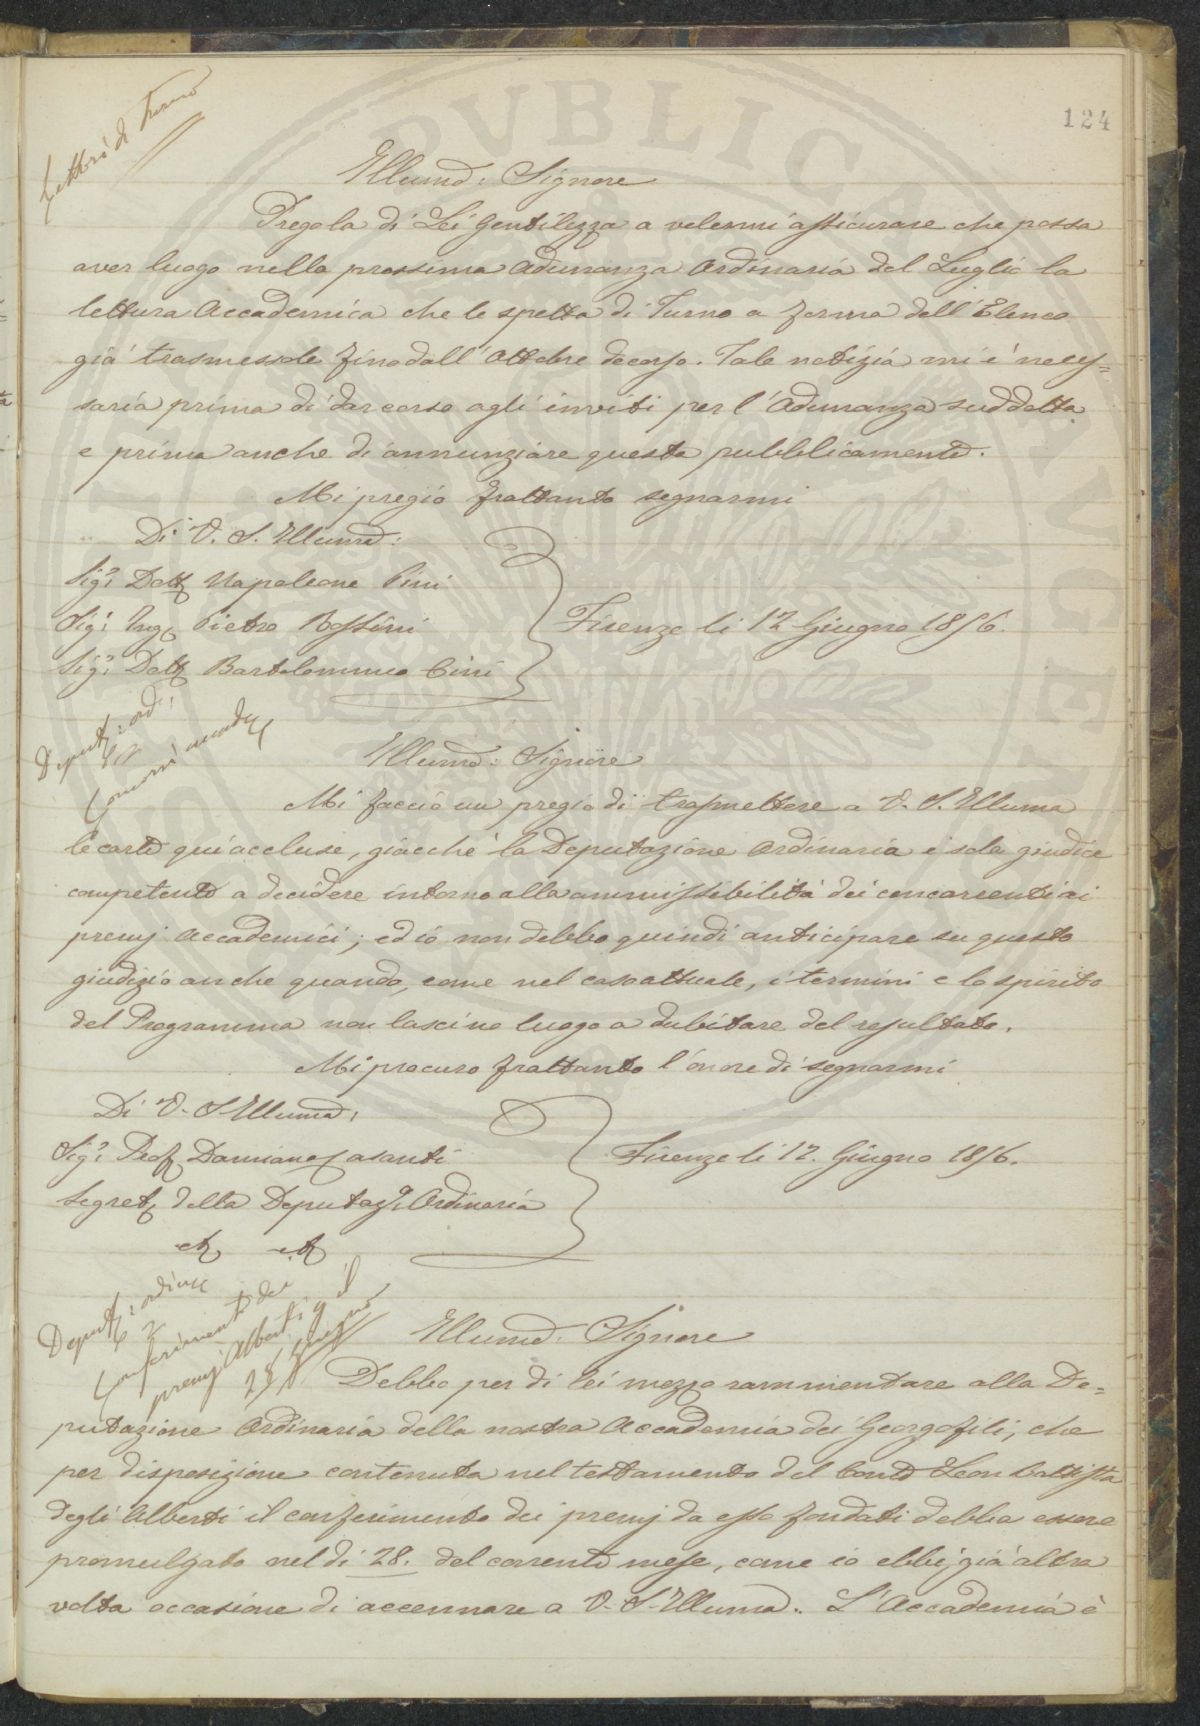 124
Lettori di Turno
Illumo: Signore
Prego la di Lei Gentilezza a volermi assicurare che possa
aver luogo nella prossima Adunanza Ordinaria del Luglio la
lettura Accademica che le spetta di Turno a forma dell'Elenco
già trasmessole fino dall'Ottobre decorso. Tale notizia mi è neces=
saria prima di dar corso agli inviti per l'Adunanza suddetta
e prima anche di annunziare questa pubblicamente.
Mi pregio frattanto segnarmi
Di V. S. Illuma:
Sigr Dott Napoleone Pini
Sigr Ing Pietro Rossini
Sigr Dott Bartolommeo Cini
Firenze li 12 Giugno 1856.
Deput: ord:
Concorsi
Illumo: Signore
Mi faccio un pregio di trasmettere a V. S. Illuma
le carte qui accluse, giacchè la Deputazione Ordinaria è sola giudice
competente a decidere intorno alla ammissibilità dei concorrenti ai
premj Accademici; ed io non debbo quindi anticipare su questo
giudizio anche quando, come nel caso attuale, i termini e lo spirito
del Programma non lascino luogo a dubitare del resultato.
Mi procuro frattanto l'onore di segnarmi
Di V. S. Illuma:
Sigr Prof Damiano Casanti
Segret della Deputaze Ordinaria
Firenze li 12. Giugno 1856.
Deput: ordina
Conferimento dei
premj Alberti il
28 Giugno
Illumo: Signore
Debbo per di Lei mezzo rammentare alla De=
putazione Ordinaria della nostra Accademia dei Georgofili, che
per disposizione contenuta nel testamento del Conte Leon Battista
degli Alberti il conferimento dei premj da esso fondati debba essere
promulgato nel dì 28. del corrente mese, come io ebbi già altra
volta occasione di accennare a V. S. Illuma. L'Accademia è